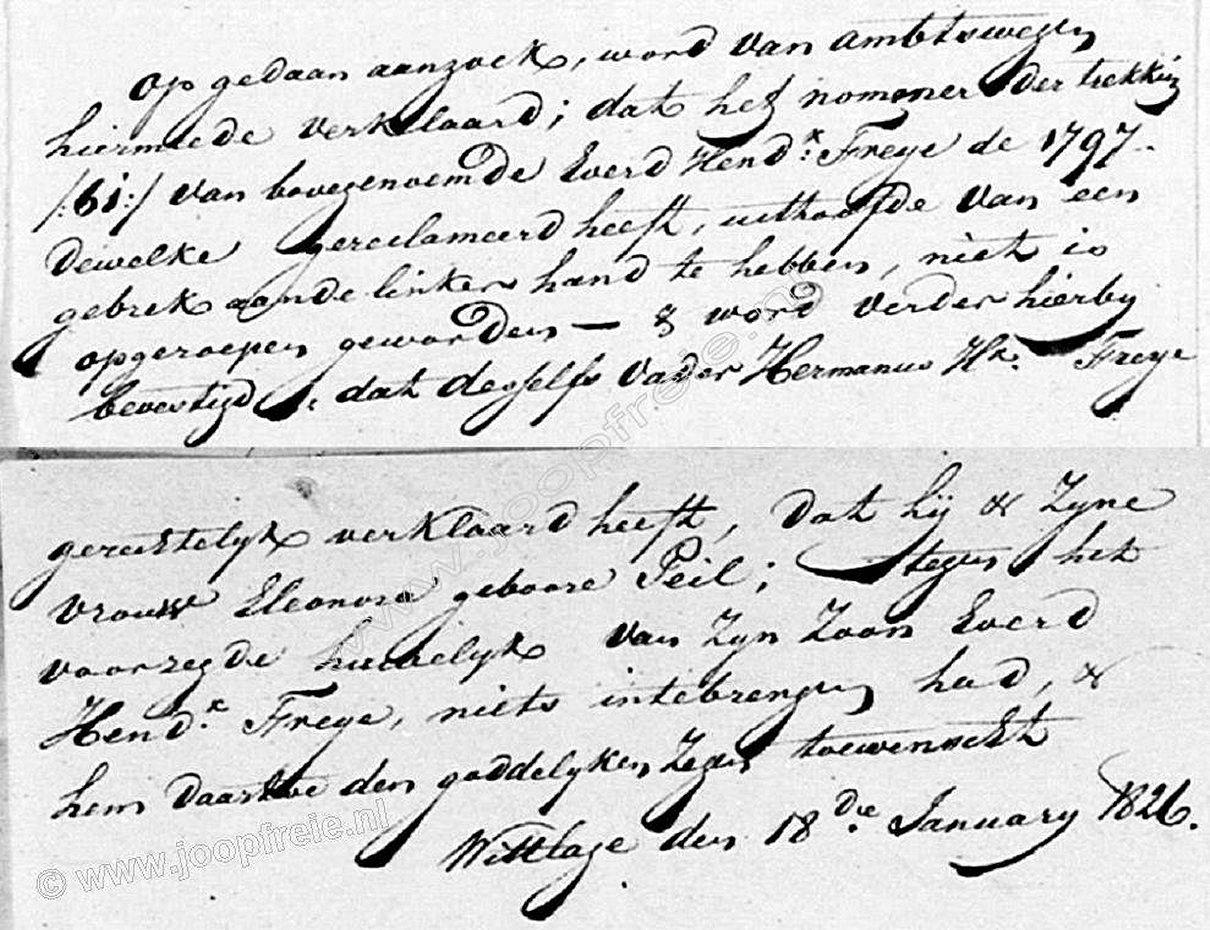 op gedaan aanzoek, word van ambtswegen
hiermede verklaard; dat het nommer der trekking
/:61:/ van bovegenoemde Everd Hendk: Freye de 1797-
dewelke gereclameerd heeft, uithoofde van een
gebrek aan de linker hand te hebben, niet is
opgeroepen geworden — & word verder hierby
bevestigd, dat deszelfs vader Hermanus Hk. Freye
gerechtelyk verklaard heeft, dat hij & zyne
vrouw Eleonora geboore Peil; tegen het
voorzegde huwelyk van zyn zoon Everd
Hendk: Freye, niets intebrengen had, &
hem daartoe den goddelyken zegen toewenscht
Wittlage den 18die January 1826.
www.joopfreie.nl
© www.joopfreie.nl